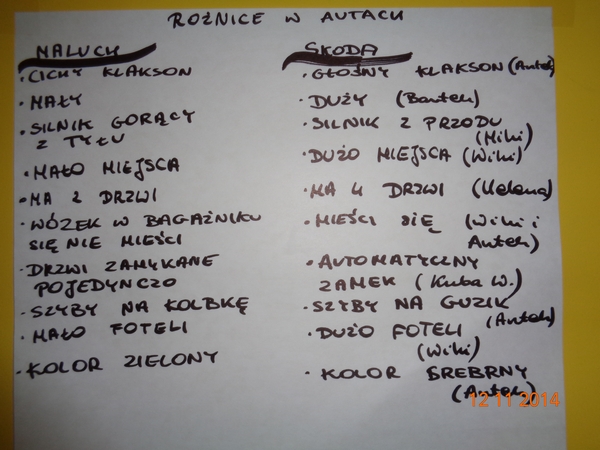 ROŻNICE W AUTACH
MALUCH
• CICHY KLAKSON
• MAŁY
• SILNIK GORĄCY
Z TYŁU
• MAŁO MIEJSCA
• MA 2 DRZWI
• WÓZEK W BAGAŻNIKU
SIĘ NIE MIEŚCI
• DRZWI ZAMYKANE
POJEDYNCZO
• SZYBY NA KOLBKĘ
• MAŁO FOTELI
• KOLOR ZIELONY
SKODA
• GŁOŚNY KLAKSON (Antek)
• DUŻY (Bartek)
• SILNIK Z PRZODU
(Miki)
• DUŻO MIEJSCA (Wiki)
• MA 4 DRZWI (Helena)
• MIEŚCI SIĘ (Wiki i
Antek)
• AUTOMATYCZNY
ZAMEK (Kuba W.)
• SZYBY NA GUZIK
(Antek)
• DUŻO FOTELI
(Wiki)
• KOLOR SREBRNY
(Antek)
12 11 2014